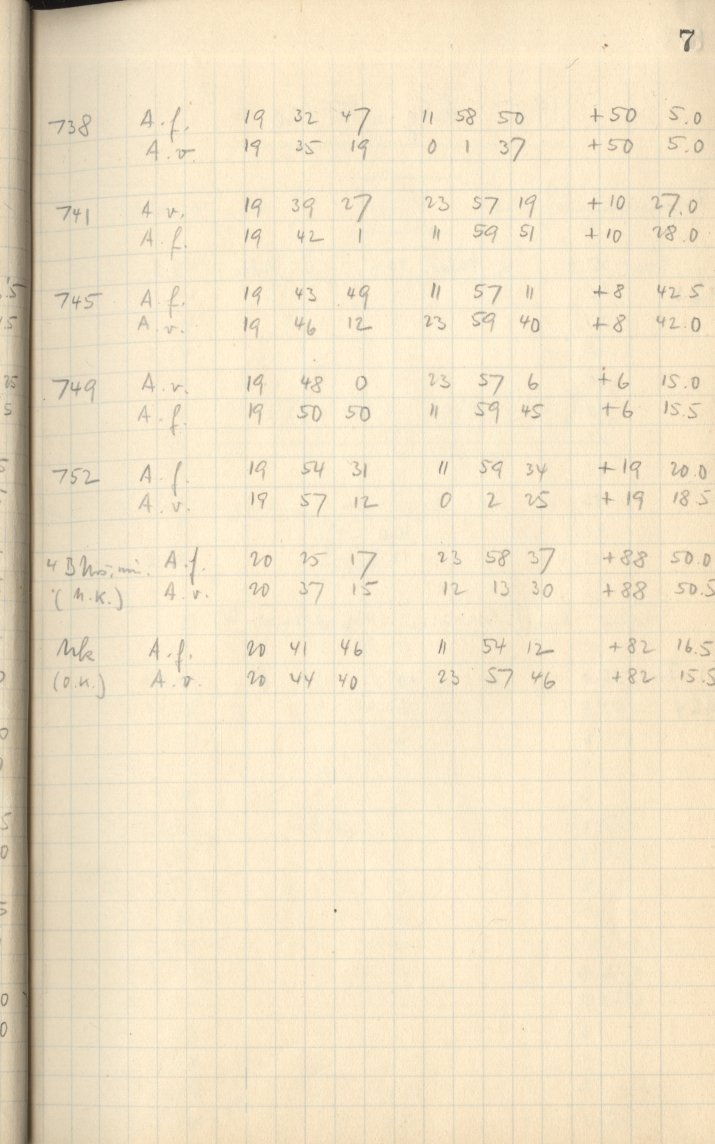 7
738 A.f. 19 32 47 11 58 50 +50 5.0
A.v. 19 35 19 0 1 37 +50 5.0
741 A v. 19 39 27 23 57 19 +10 27.0
A.f. 19 42 1 11 59 51 +10 28.0
745 A.f. 19 43 49 11 57 11 +8 42 5
A.v. 19 46 12 23 59 40 +8 42.0
749 A.v. 19 48 0 23 57 6 +6 15.0
A.f. 19 50 50 11 59 45 +6 15.5
752 A.f. 19 54 31 11 59 34 +19 20.0
A.v. 19 57 12 0 2 25 +19 18 5
4 B min. A.f. 20 25 17 23 58 37 +88 50.0
(n.K.) A.v. 20 37 15 12 13 30 +88 50.5
A.f. 20 41 46 11 54 12 +82 16.5
(o.K.) A.v. 20 44 40 23 57 46 +82 15.5